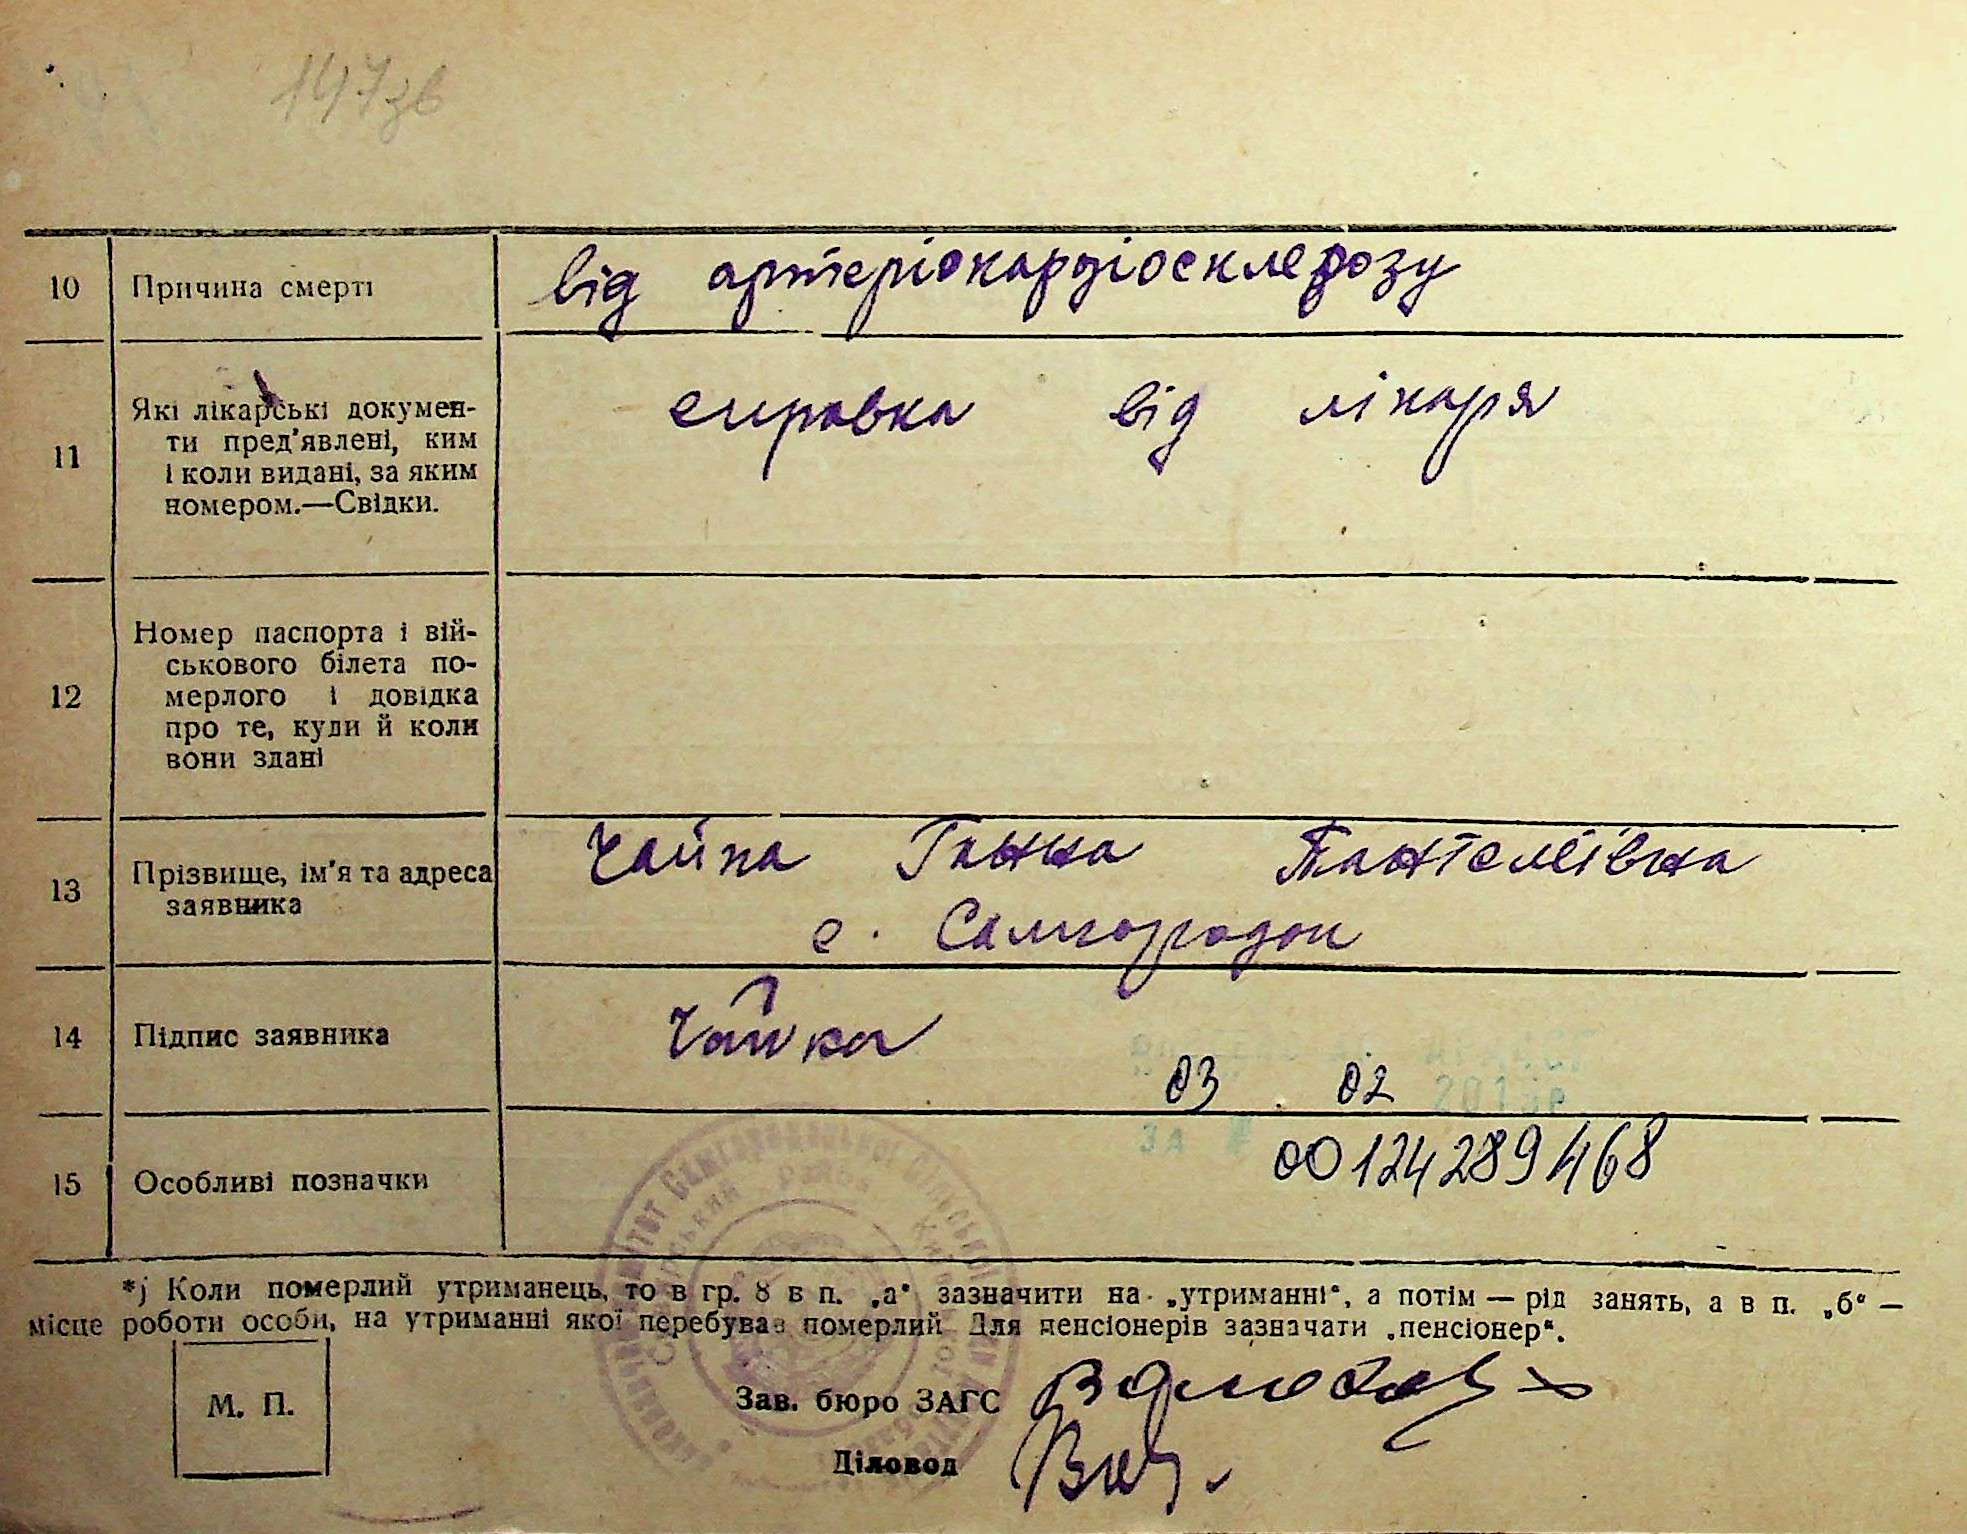 147зв
10 Причина смерті від артеріокардіосклерозу
11 Які лікарські докумен-
ти пред'явлені, ким
і коли видані, за яким
номером.—Свідки.
справка від лікаря
12 Номер паспорта і вій-
ськового білета по-
мерлого і довідка
про те, куди й коли
вони здані
13 Прізвище, ім'я та адреса
заявника
Чайка Ганна Пантеліївна
с. Самгородок
14 Підпис заявника Чайка
03 . 02 201
ЗА №
00124289468
15 Особливі позначки
*) Коли померлий утриманець, то в гр. 8 в п. „а“ зазначити на „утриманні“, а потім — рід занять, а в п. „б“ —
місце роботи особи, на утриманні якої перебував померлий Для пенсіонерів зазначати „пенсіонер“.
М. П.
Зав. бюро ЗАГС
Діловод